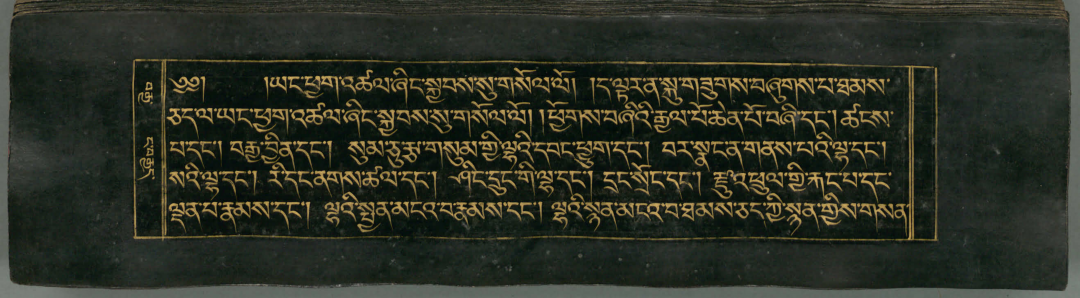 ༄༅། །ཡང་ཕྱག་འཚལ་ཞིང་སྐྱབས་སུ་གསོལ་ལོ། །ད་ལྟར་ན་སྐུ་གཟུགས་བཞུགས་པ་ཐམས་
ཅད་ལ་ཡང་ཕྱག་འཚལ་ཞིང་སྐྱབས་སུ་གསོལ་ལོ། །ཕྱོགས་བཞིའི་རྒྱལ་པོ་ཆེན་པོ་བཞི་དང་། ཚངས་
པ་དང་། བརྒྱ་བྱིན་དང་། སུམ་ཅུ་རྩ་གསུམ་གྱི་ལྷའི་དབང་ཕྱུག་དང་། བར་སྣང་ན་གནས་པའི་ལྷ་དང་།
སའི་ལྷ་དང་། རི་དང་ནགས་ཚལ་དང་། ཤིང་དྲུང་གི་ལྷ་དང་། དྲང་སྲོང་དང་། རྫུ་འཕྲུལ་གྱི་རྐང་པ་དང་
ལྡན་པ་རྣམས་དང་། ལྷའི་སྤྱན་མངའ་བ་རྣམས་དང་། ལྷའི་སྙན་མངའ་བ་ཐམས་ཅད་ཀྱི་སྙན་གྱིས་གསན་